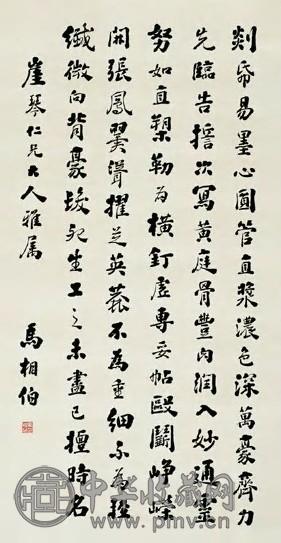 剡帋易墨心圓管直漿濃色深萬豪齊力
先臨告誓次寫黃庭骨豐肉潤入妙通靈
努如直槊勒為橫釘虛專妥帖毆鬭崢嶸
開張鳳翼聳擢芝英麤不為重細不為輕
纖微向背豪髮死生工之未盡已擅時名
崖琴仁兄大人雅屬
馬相伯
中华收藏网
www.pmv.cn